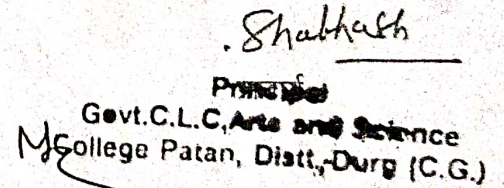 . Shabhash
Principal
Govt.C.L.C,Arts and Science
College Patan, Distt,-Durg (C.G.)